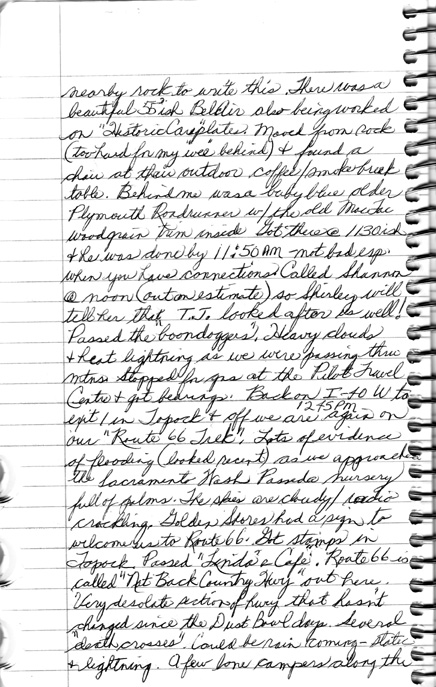 nearby rock to write this. There was a
beautiful 55ish BelAir also being worked
on "Historic Cars" plates. Moved from rock
(too hard for my wee behind) & found a
chair at their outdoor coffee/smokebreak
table. Behind me was a baby blue older
Plymouth Roadrunner w/ the old
woodgrain trim inside Got there @ 1130ish
& he was done by 11:50 AM not bad esp.
when you have connections. Called Shannon
@ noon (out on estimate) so Shirley will
tell her that T.T. looked after us well!
Passed the "boondoggers", Heavy clouds
& heat lightning as we were passing thru
mtns stopped for gas at the Pilot Travel
Centre & got bearings. Back on I-40 W to
exit 1 in Topock & off we are again on
12:45 PM
our "Route 66 Trek". Lots of evidence
of flooding (looked recent) as we approached
the Sacramento Wash Passed a nursery
full of palms. The skies are cloudy/radio
crackling. Golden Shores had a sign to
welcome us to Route 66. Got stamps in
Topock. Passed "Linda's Cafe". Route 66 is
called "Nat Back Country Hwy" out here.
Very desolate section of hwy that hasn't
changed since the Dust Bowl days. Several
"death crosses". Could be rain coming - static
& lightning. A few lone campers along the